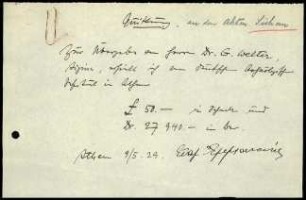 Quittung, aus den Akten
Zur Übergabe an Herrn Dr. G. Welter,
Aigina, erhielt ich am Deutschen Archäologischen
Institut in Athen
£ 50.— in Schecks und
Dr. 27 940.— in bar
Athen 9/5.29.